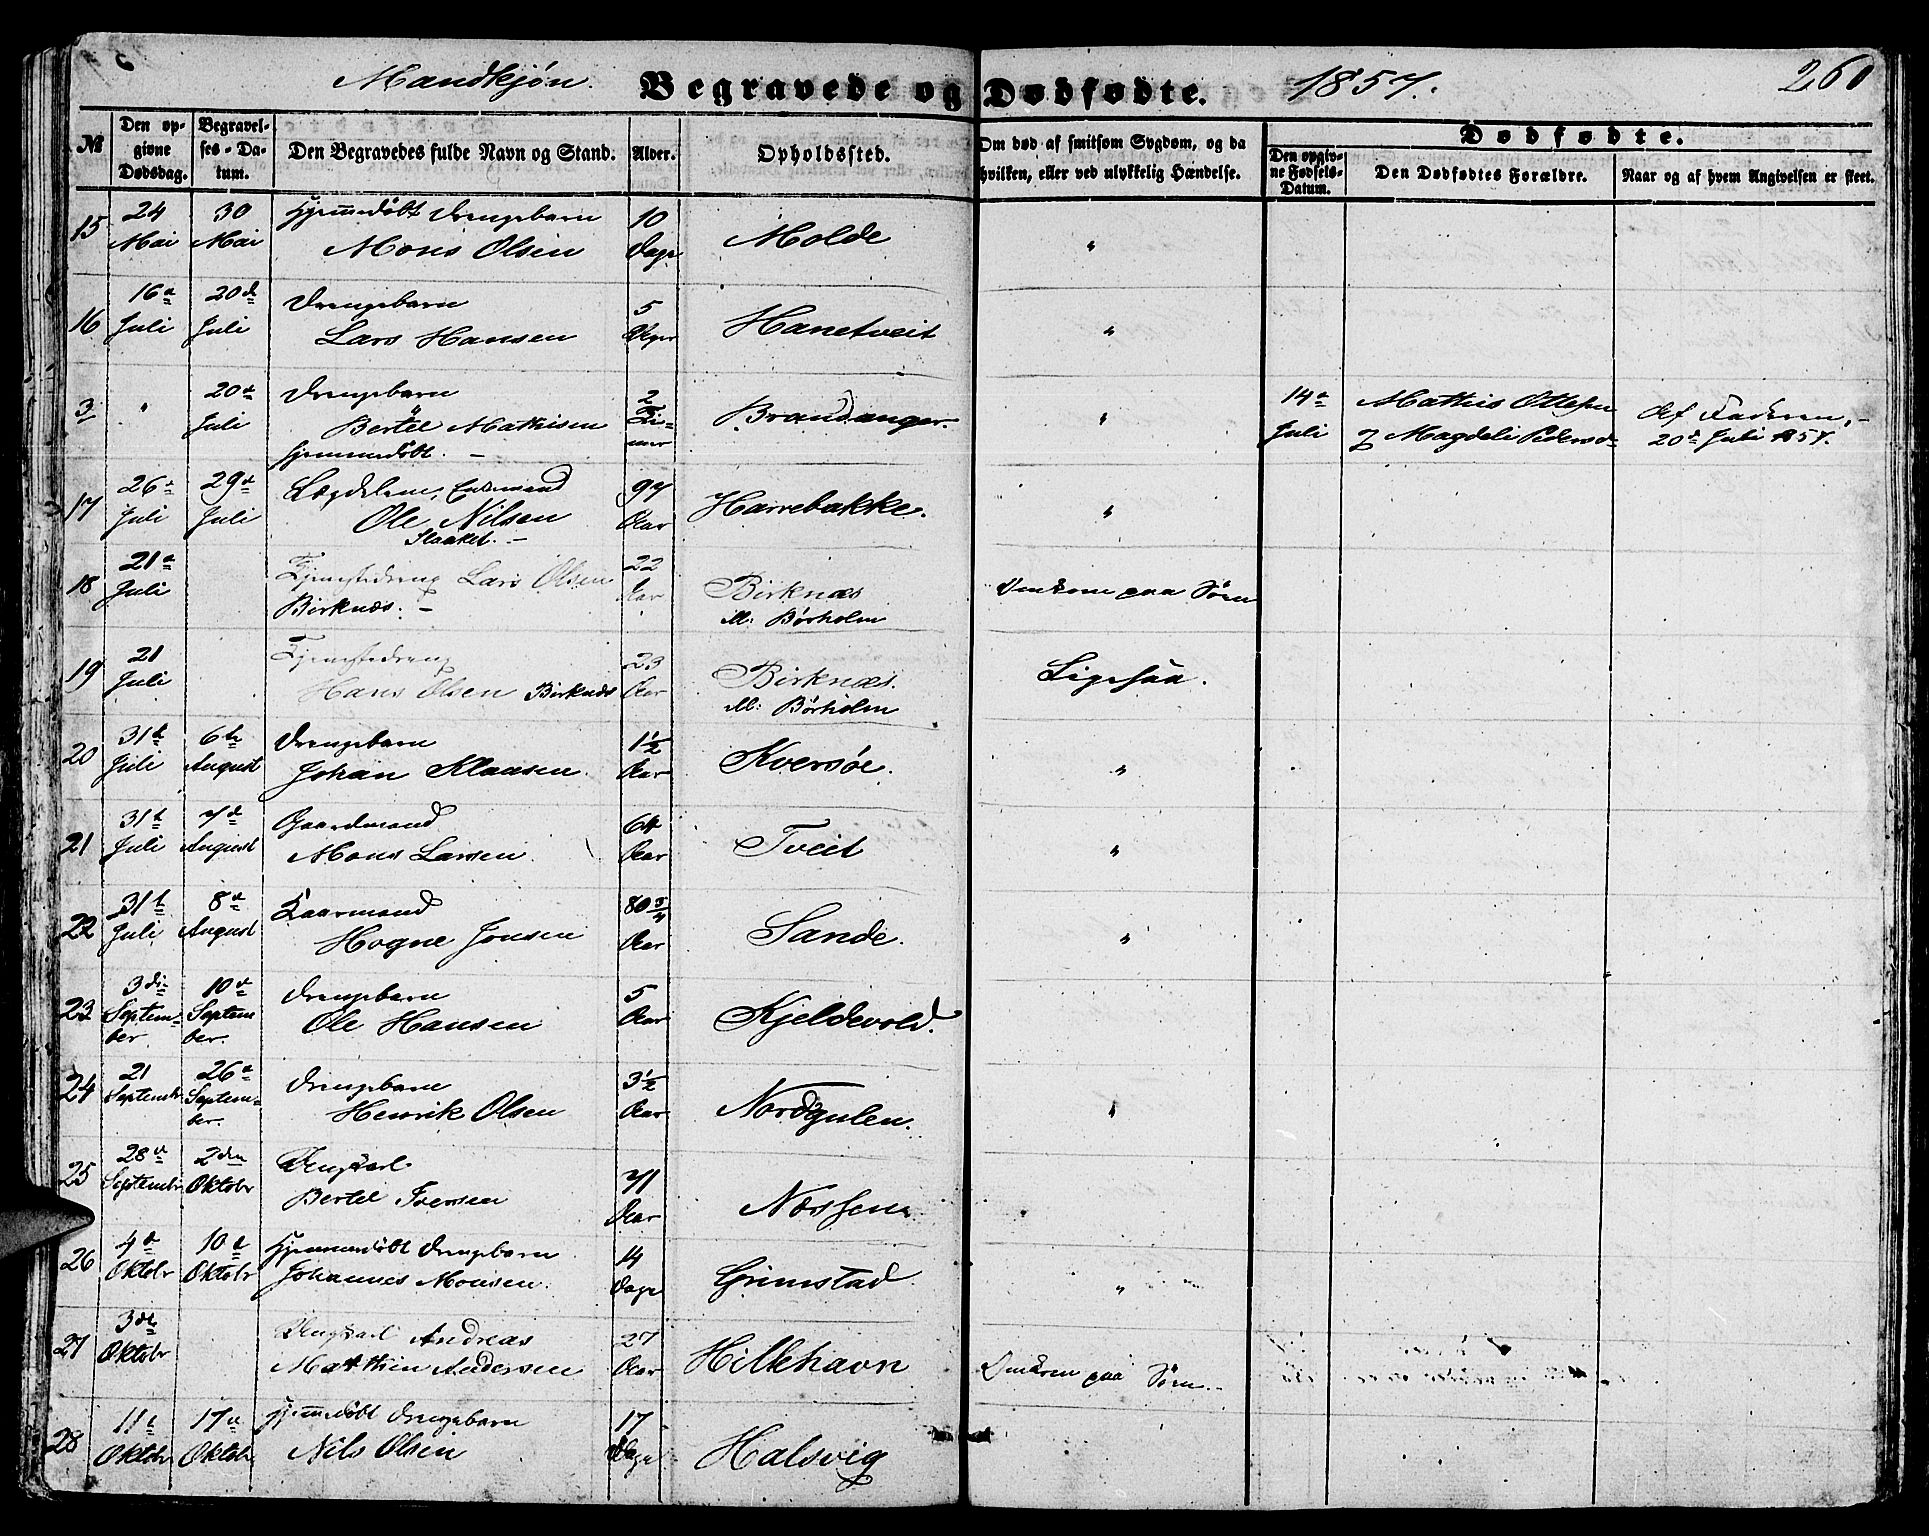 Mandkjøn. Begravede og Dødfødte. 1857. 260
№
Den opgivne Dødsdag.
Begravelses-Datum.
Den Begravedes fulde Navn og Stand.
Alder.
Opholdssted.
Om død af smitsom Sygdom, og da hvilken, eller ved ulykkelig Hændelse.
Dødfødte.
Den opgivne Fødsels-Datum.
Den Dødfødtes Forældre.
Naar og af hvem Angivelsen er skeet.
15 24 Mai 30 Mai Hjemmedøbt Drengebarn 10 Dage Molde "
Mons Olsen
16 16de Juli 20de Juli Drengebarn 5 Hanetveit "
Lars Hansen
3 " 20de Juli Drengebarn 2 Timer Brandanger. " 14de Juli Mathis Ottesen Af Faderen,
Bertel Mathisen & Magdeli Pedersd 20de Juli 1857.
hjemmedøbt. –
17 26de Juli 29de Juli Lægdslem, Enkemand 97 Aar Harrebakke. "
Ole Nilsen
Slaaket. –
18 21de Juli Tjenestedreng Lars Olsen 22 Aar Birknæs Omkom paa Søen
Birknæs. – M: Børholm
19 21 Juli Tjenestedreng 23 Aar Birknæs. Ligesaa.
Hans Olsen Birknæs M: Børholm
20 31te Juli 6te August Drengebarn 1½ Aar Kversøe. "
Johan Klausen.
21 31te Juli 7de August Gaardmand 64 Aar Tveit "
Mons Larsen.
22 31te Juli 8de August Kaarmand 80 Aar Sande. "
Hogne Jonsen
23 3die September 10de September Drengebarn 5 Aar Kjeldevold.
Ole Hansen
24 21 Septembr 26de September Drengebarn 3½ Aar Nordgulen. "
Henrik Olsen
25 28de Septembr 2den Oktobr Ungkarl 71 Aar
Bertel Iversen
26 4de Oktobr 10de Oktobr Hjemmedøbt Drengebarn 14 Dage Grimstad. "
Johannes Monsen.
27 3die Oktobr Ungkarl Andreas 27 Aar Hilkhavn Omkom paa Søen.
Matthias Andersen
28 11te Oktobr 17de Oktobr Hjemmedøbt Drengebarn 17 Dage Halsvig
Nils Olsen